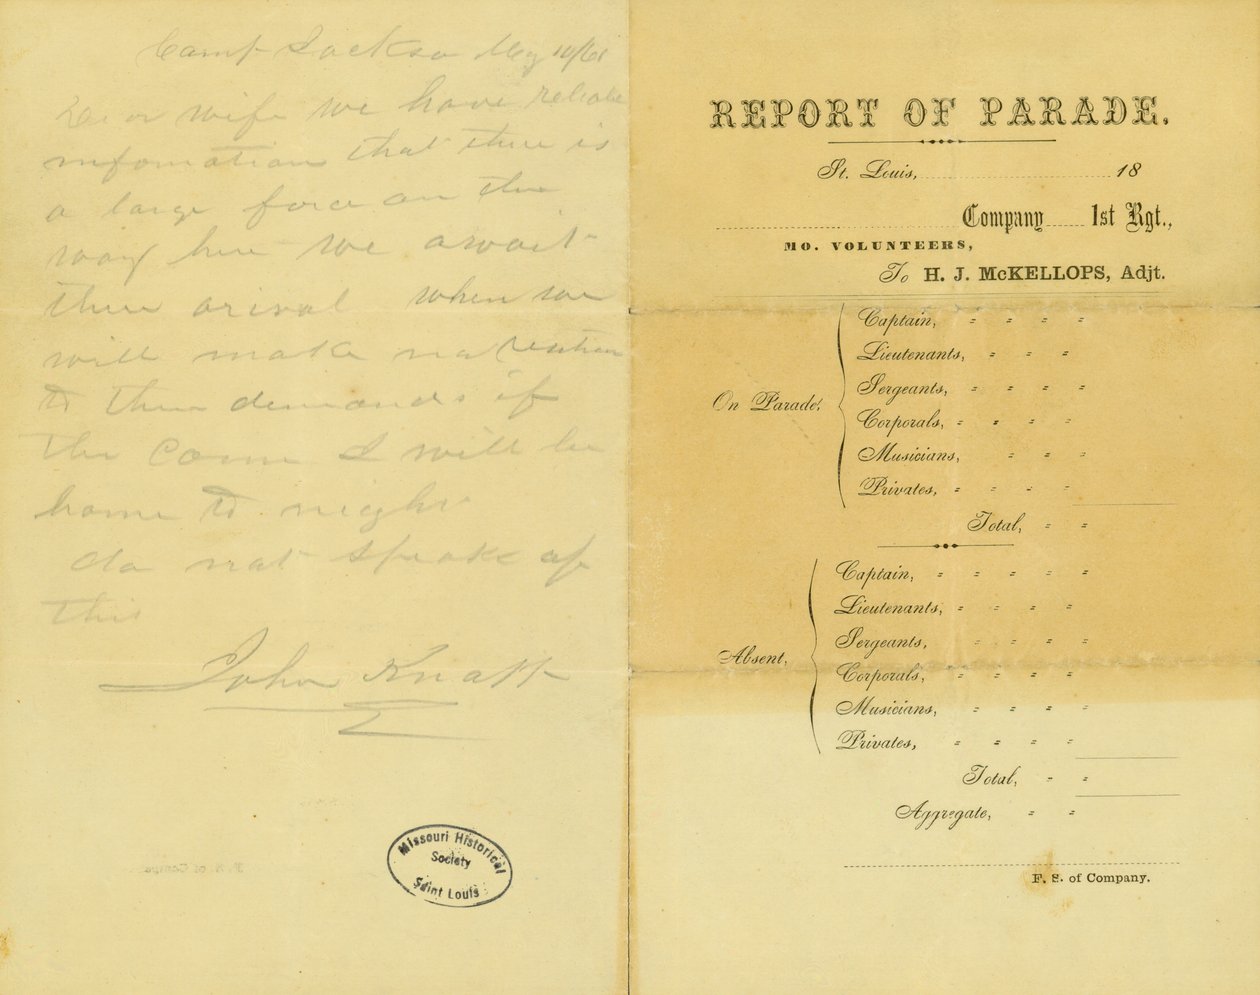 Camp Jackson May 10/61
Dear wife we have reliable
infomation that there is
a large force on the
way here we await
there arival when we
will make no resistance
to them demands if
the come I will be
home to night
do not speak of
this
John Knapp
Missouri Historical
Society
Saint Louis
REPORT OF PARADE.
St. Louis, 18
Company 1st Rgt.,
MO. VOLUNTEERS,
To H. J. McKELLOPS, Adjt.
On Parade,
Captain, " " " "
Lieutenants, " " "
Sergeants, " " " "
Corporals, " " " "
Musicians, " " "
Privates, " " " "
Total, " "
Absent,
Captain, " " " " "
Lieutenants, " " " "
Sergeants, " " " "
Corporals, " " " "
Musicians, " " " "
Privates, " " " "
Total, " "
Aggregate, " "
F. S. of Company.